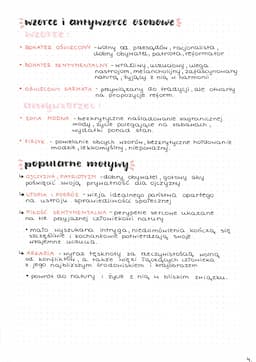 wzorce i antywzorce osobowe
wzorce:
• BOHATER OŚWIECONY - wolny od przesądów, racjonalista,
dobry obywatel, patriota, reformator
• BOHATER SENTYMENTALNY - wrażliwy, uczuciowy, ulega
nastrojom, melancholijny, zafascynowany
naturą, żyjący z nią w harmonii
• OŚWIECONY SARMATA - przywiązany do tradycji, ale otwarty
na propozycje reform.
antywzorce:
• ŻONA MODNA - bezkrytyczne naśladowanie zagranicznej
mody, życie polegające na zabawach,
wydatki ponad stan
• FIRCYK - powielanie obcych wzorów, bezkrytyczne hołdowanie
modzie, lekkomyślny, niepoważny.
popularne motywy
OJCZYZNA, PATRIOTYZM - dobry obywatel, gotowy aby
poświęcić swoją prywatność dla ojczyzny
UTOPIA I PODRÓŻ - wizja idealnego państwa opartego
na ustroju sprawiedliwości społecznej
MIŁOŚĆ SENTYMENTALNA - perypetie sercowe ukazane
na tle przyjaznej człowiekowi natury
• mało wyszukana intryga, niedomówienia kończą się
szczęśliwie i kochankowie potwierdzają swoje
wzajemne uczucia.
ARKADIA - wyraz tęsknoty za rzeczywistością wolną
od konfliktów, a także więzi łączących człowieka
z jego najbliższym środowiskiem i krajobrazem
• powrót do natury i życie z nią w bliskim związku.
4.